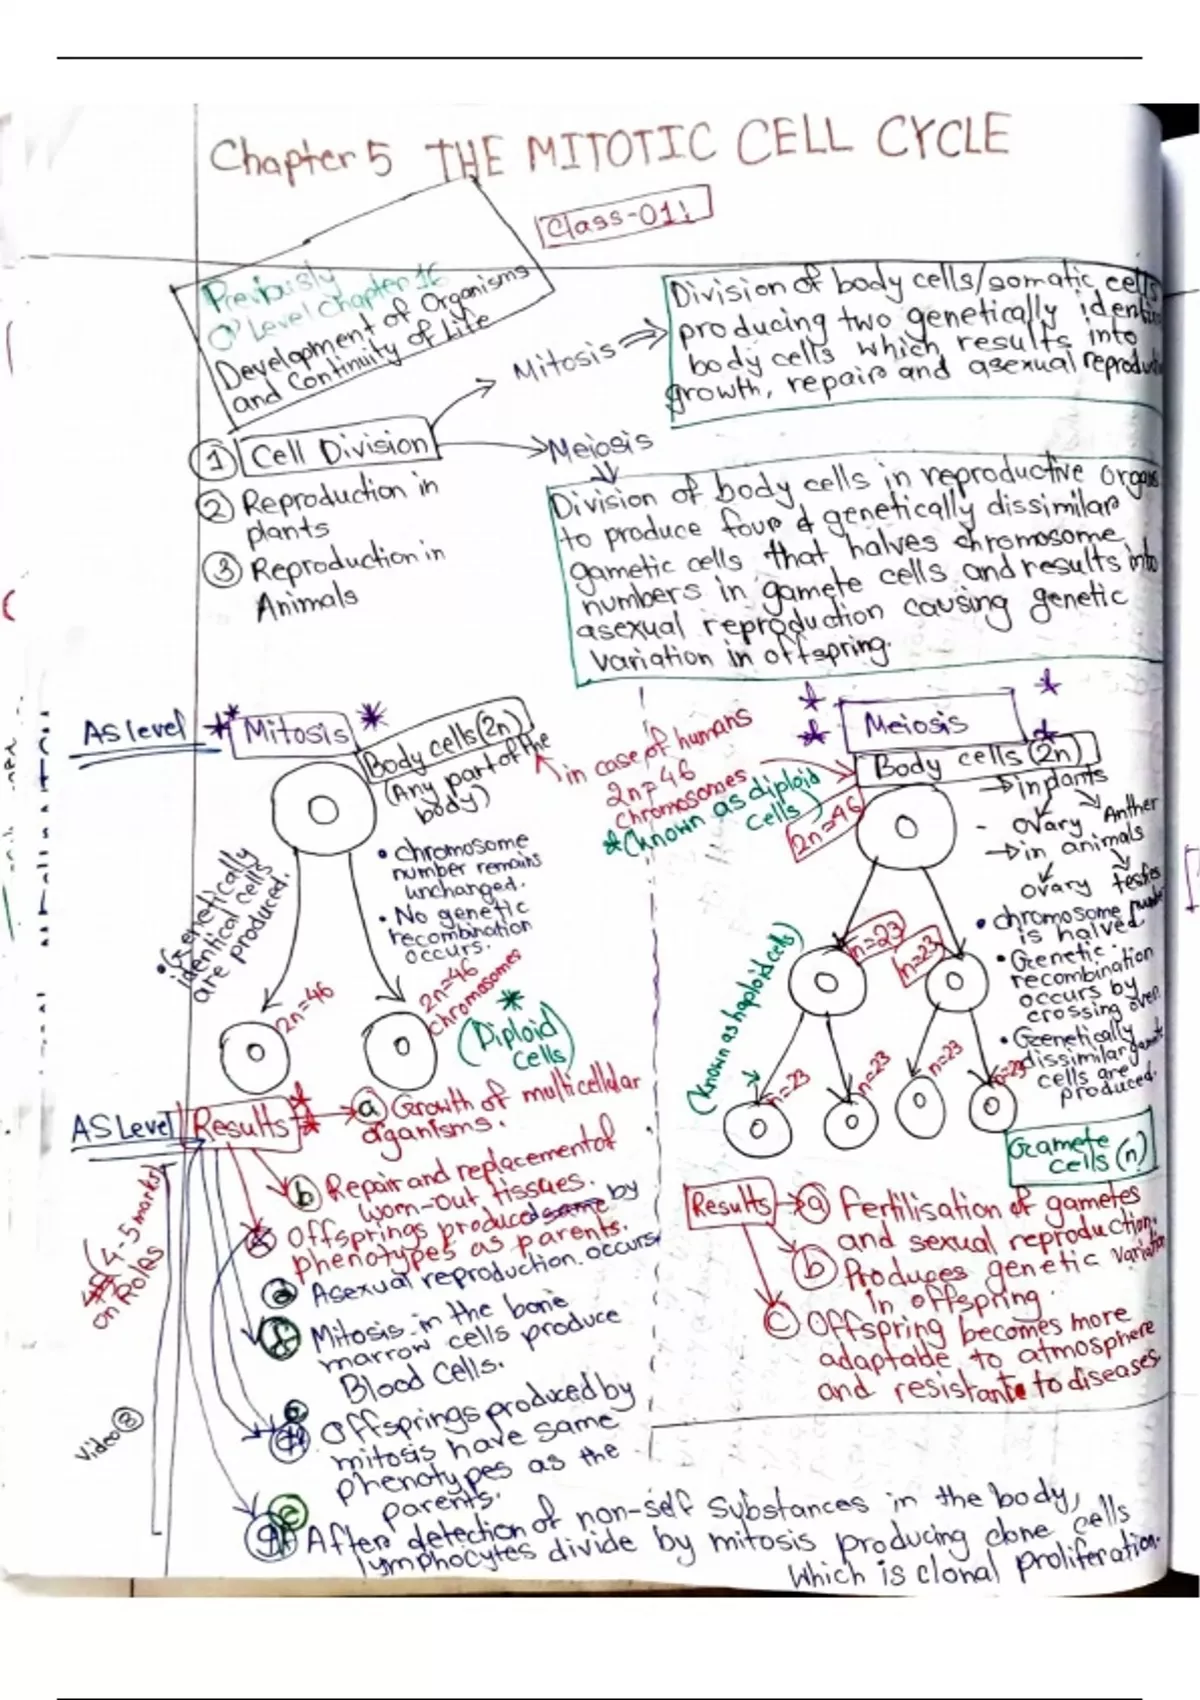 Chapter 5 THE MITOTIC CELL CYCLE
Class-01:
Previously
O' Level Chapter 16
Development of Organisms
and Continuity of Life
Mitosis
Division of body cells/somatic cells
producing two genetically
body cells which results into
growth, repair and asexual
① Cell Division
Meiosis
② Reproduction in
plants
③ Reproduction in
Animals
Division of body cells in reproductive
to produce four & genetically dissimilar
gametic cells that halves chromosome
numbers in gamete cells and results into
asexual reproduction causing genetic
variation in offspring.
AS level
Mitosis
Body cells (2n)
(Any part of the
body)
in case of humans
2n = 46
chromosomes
(known as diploid
cells)
• chromosome
number remains
unchanged.
• No genetic
recombination
occurs.
• Genetically
identical cells
are produced.
2n=46
2n=46
chromosomes
(Diploid
cells)
Meiosis
Body cells (2n)
2n=46
→ in plants
ovary Anther
→ in animals
ovary testes
• chromosome
is halved.
• Genetic
recombination
occurs by
crossing over.
• Geenetically
dissimilar
cells are
produced.
n=23
n=23
(known as haploid cells)
n=23
n=23
n=23
n=23
Gamete
cells (n)
AS Level
Results
ⓐ Growth of multicellular
organisms.
ⓑ Repair and replacement of
worn-out tissues.
Offsprings produced same by
phenotypes as parents.
ⓓ Asexual reproduction occurs
Mitosis in the bone
marrow cells produce
Blood Cells.
Offsprings produced by
mitosis have same
phenotypes as the
parents.
After detection of non-self substances in the body,
lymphocytes divide by mitosis producing clone cells
which is clonal proliferation.
(4-5 marks)
on Roles
Video ⑧
Results
ⓐ Fertilisation of gametes
and sexual reproduction.
ⓑ Produces genetic variation
in offspring.
ⓒ Offspring becomes more
adaptable to atmosphere
and resistante to diseases.